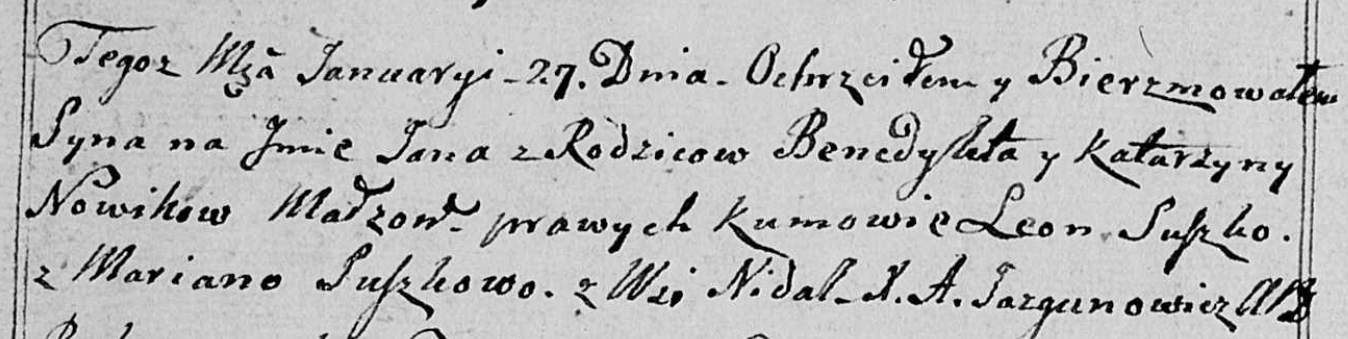 Tegoz Mća Januaryi - 27. Dnia - Ochrzciłem y Bierzmowałem
Syna na Jmie Jana z Rodzicow Benedykta y Katarzyny
Nowikow Małzon. prawych Kumowie Leon Suszko.
z Mariano Suszkowo. z Wsi Nidal - X. A. Jazgunowicz